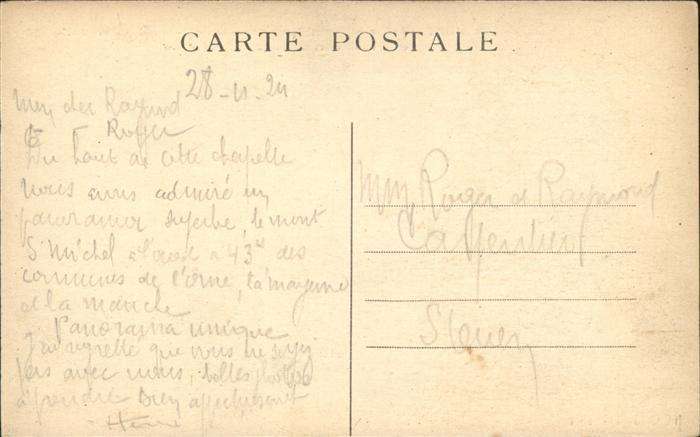 CARTE POSTALE
28-11-24
mon cher Raymond
et Roger
Du haut de cette chapelle
nous avons admiré un
panorama superbe, le mont
St Michel à l'ouest 43 des
communes de l'orne, la mayenne
et la manche
Panorama unique
J'ai regretté que vous ne soyez
pas avec nous, belles photos
à prendre Bien affectueusement
MM. Roger et Raymond
Carpentier